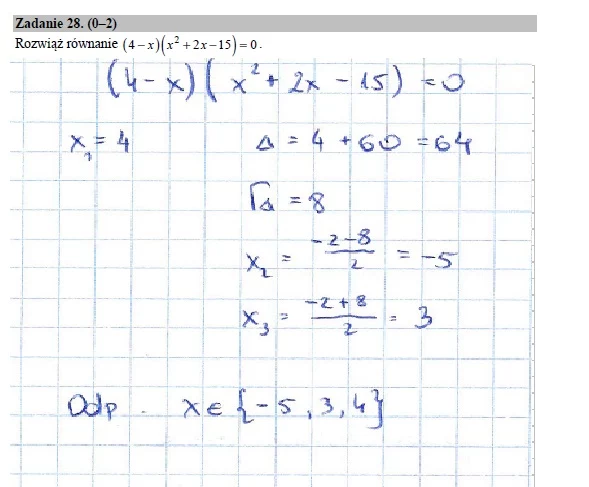 Zadanie 28. (0–2)
Rozwiąż równanie (4−x)(x²+2x−15)=0.
(4−x)(x²+2x−15)=0
x₁=4 Δ = 4 +60 =64
√Δ = 8
x₂ = (−2−8)/2 = −5
x₃ = (−2+8)/2 = 3
Odp. x∈{−5,3,4}